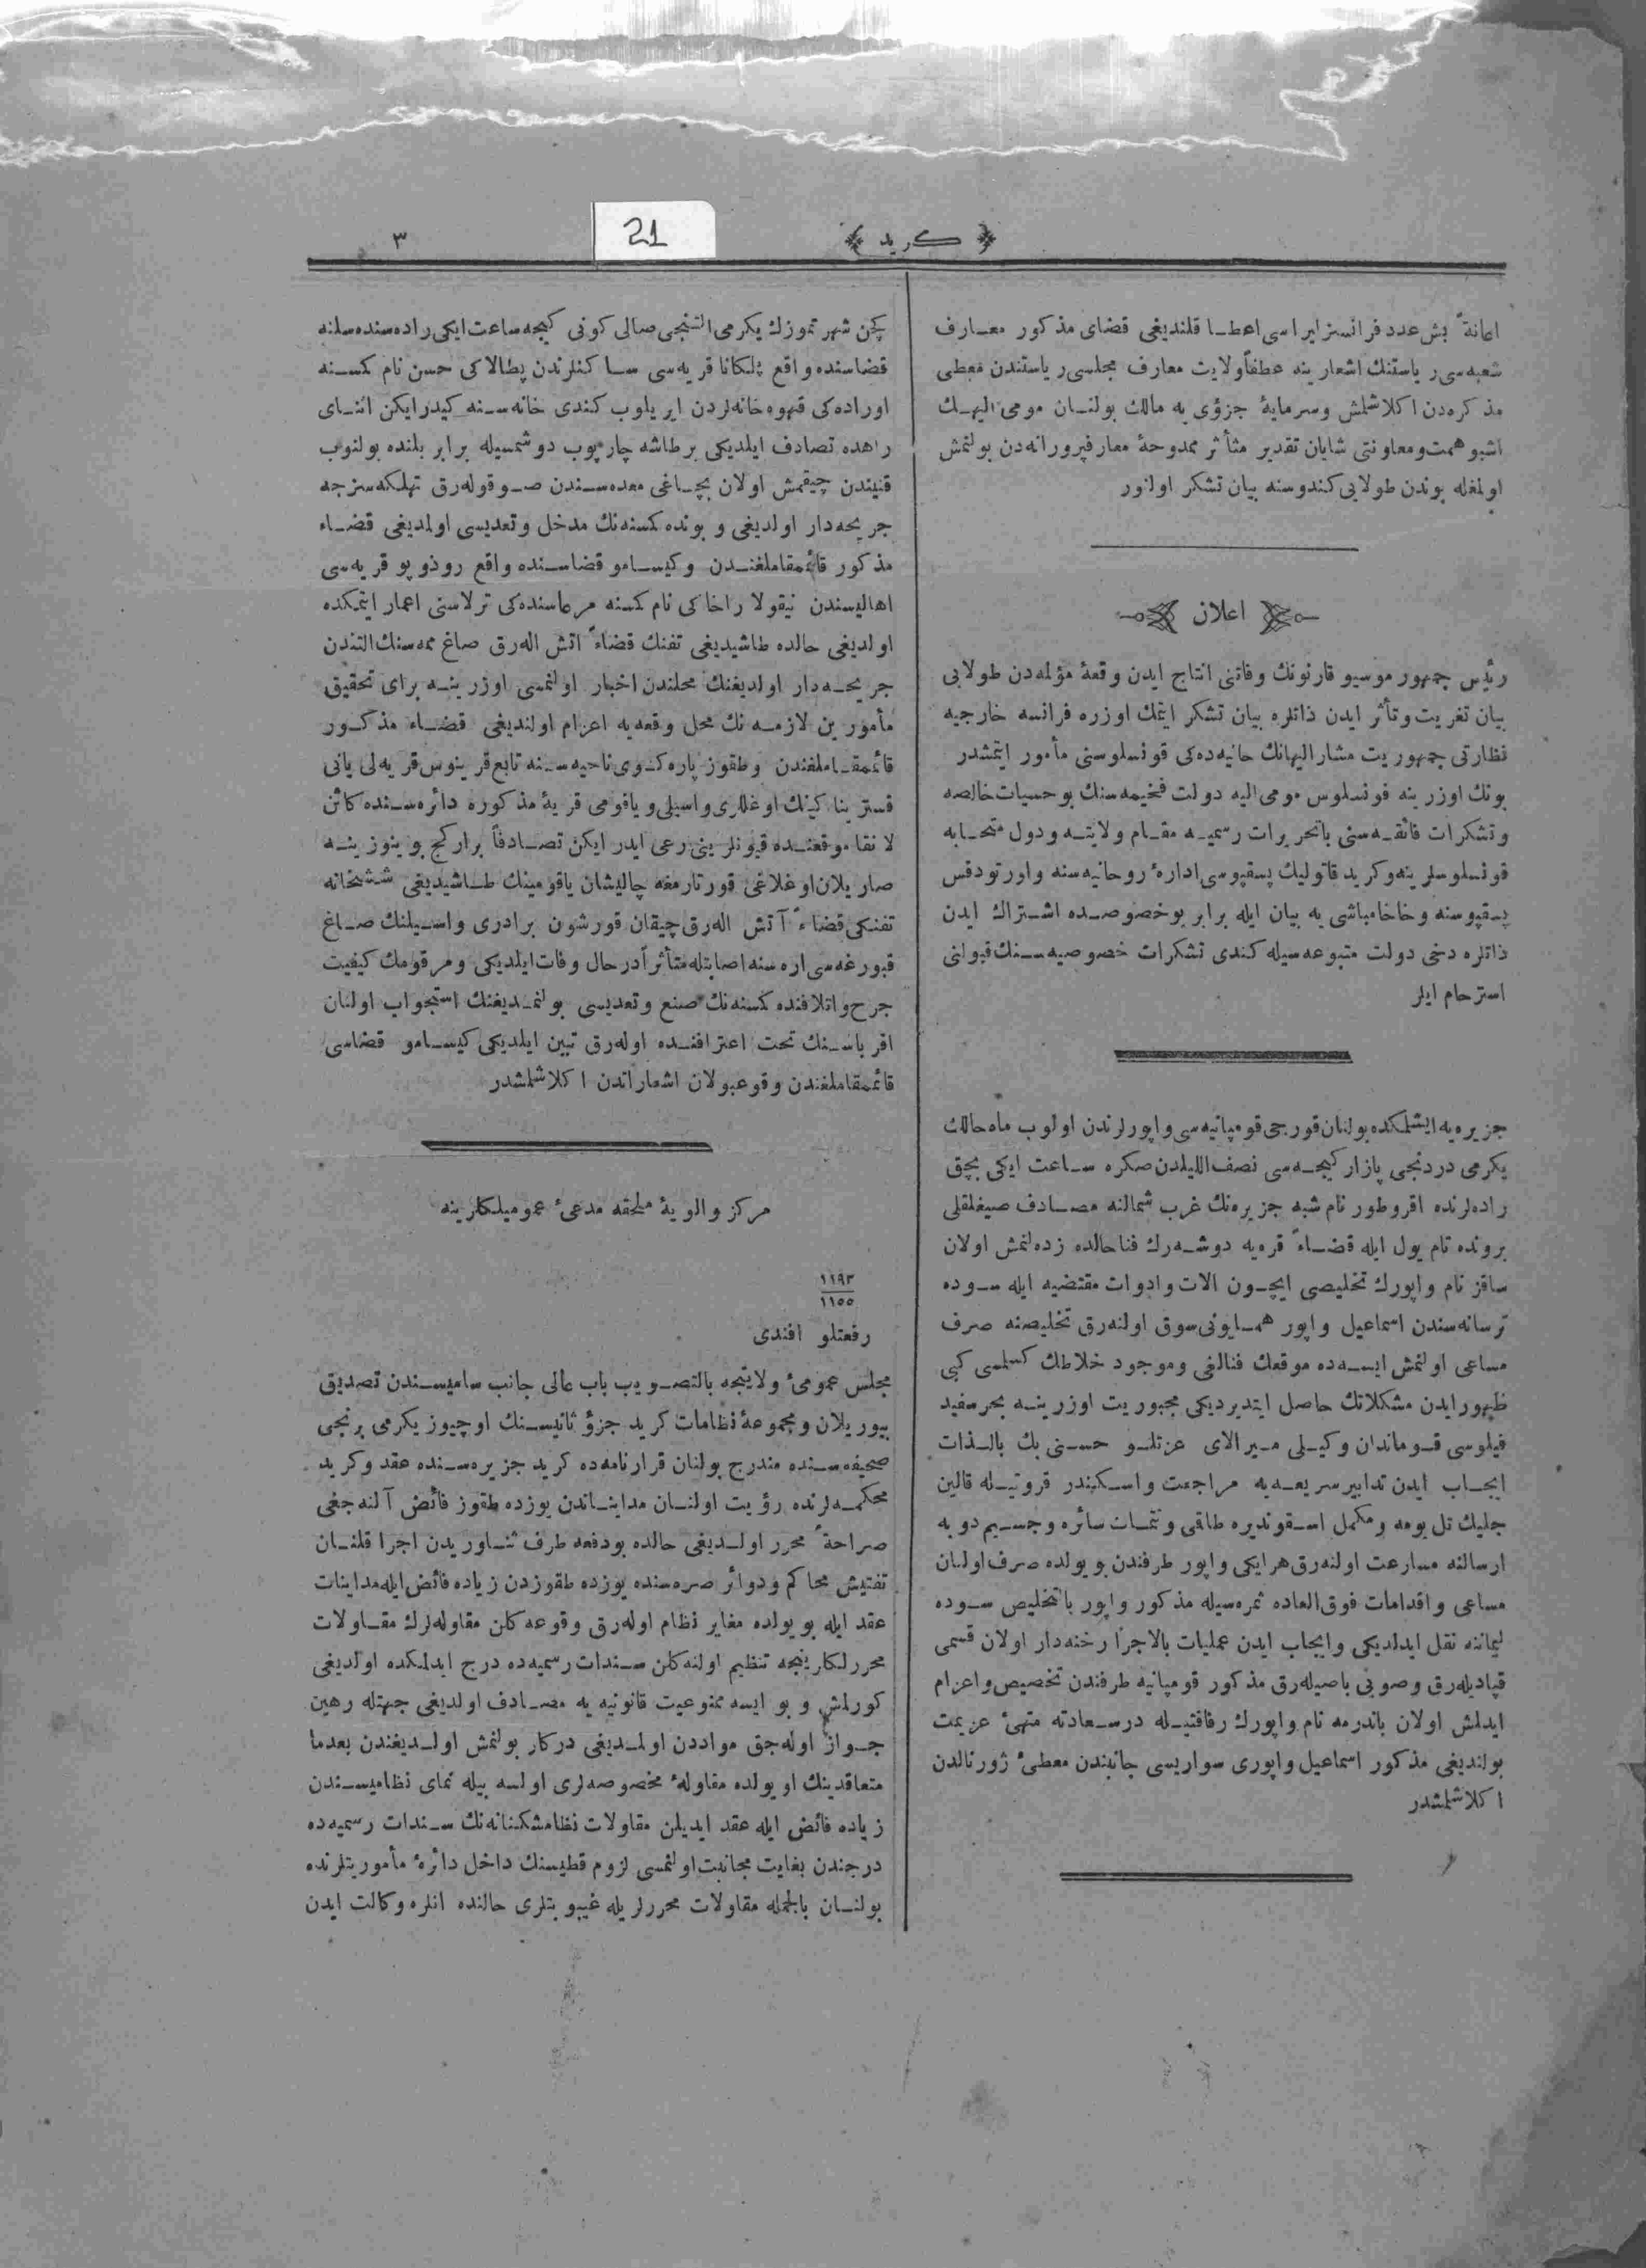 ﴿ كريد ﴾
٣
21
اعانةً بش عدد فرانسز ليراسى اعطا قلنديغى قضاى مذكور معارف
شعبه‌سى رياستنك اشعارينه عطفاً ولايت معارف مجلسى رياستندن معطى
مذكره‌دن اكلاشلمش وسرمايۀ جزؤى يه مالك بولنان مومى اليهك
اشبو همت ومعاونتى شايان تقدير مثأثر ممدوحۀ معارفپرورانه‌دن بولنمش
اولمغله بوندن طولايى كندوسنه بيان تشكر اولنور
اعلان
رئيس جمهور موسيو قارنونك وفاتنى انتاج ايدن وقعۀ مؤلمه‌دن طولايى
بيان تعزيت وتأثر ايدن ذاتلره بيان تشكر ايتمك اوزره فرانسه خارجيه
نظارتى جمهوريت مشار اليهانك حانيه‌ده‌كى قونسلوسنى مأمور ايتمشدر
بونك اوزرينه قونسلوس مومى اليه دولت فخيمه‌سنك بو حسيات خالصه
وتشكرات فائقه‌سنى باتحريرات رسميه مقام ولايته ودول متحابه
قونسلوسلرينه وكريد قاتوليك پسقپوسى ادارۀ روحانيه‌سنه واورتودقس
پسقپوسنه وخاخامباشى يه بيان ايله برابر بو خصوصده اشتراك ايدن
ذاتلره دخى دولت متبوعه‌سيله كندى تشكرات خصوصيه‌سنك قبولنى
استرحام ايلر
جزيره‌يه ايشلمكده بولنان قورجى قومپانيه‌سى واپورلرندن اولوب ماه حالك
يكرمى دردنجى پازار كيجه‌سى نصف الليلدن صكره ساعت ايكى بچق
راده‌لرنده اقروطور نام شبه جزيره‌نك غرب شمالنه مصادف صيغلقلى
برونده تام يول ايله قضاءً قره‌يه دوشه‌رك فنا حالده زده‌لنمش اولان
ساقز نام واپورك تخليصى ايچون الات وادوات مقتضيه ايله سوده
ترسانه‌سندن اسماعيل واپور همايونى سوق اولنه‌رق تخليصنه صرف
مساعى اولنمش ايسه‌ده موقعك فنالغى وموجود خلاطك كسلمسى كبى
ظهور ايدن مشكلاتك حاصل ايتديرديكى مجبوريت اوزرينه بحر سفيد
فيلوسى قوماندان وكيلى ميرالاى عزتلو حسنى بك بالذات
ايجاب ايدن تدابير سريعه‌يه مراجعت واسكندر قروتيله قالين
جليك تل بومه ومكمل اسقوندیره طاقى وتتمات سائره وجسيم دوبه
ارسالنه مسارعت اولنه‌رق هر ايكى واپور طرفندن بو يولده صرف اولنان
مساعى واقدامات فوق العاده ثمره‌سيله مذكور واپور بالتخليص سوده
ليماننه نقل ايدلديكى وايجاب ايدن عمليات بالاجرا رخنه‌دار اولان قسمى
قپاديله‌رق وصونى باصيله‌رق مذكور قومپانيه طرفندن تخصيص واعزام
ايدلمش اولان باندرمه نام واپورك رفاقتيله درسعادته متهئ عزيمت
بولنديغى مذكور اسماعيل واپورى سواريسى جانبندن معطئ ژورنالدن
اكلاشلمشدر
كچن شهر تموزك يكرمى التنجى صالى كونى كيجه ساعت ايكى راده‌سنده سلنه
قضاسنده واقع پلكانا قريه‌سى ساكنلرندن پطالاكى حسن نام كسنه
اوراده‌كى قهوه خانه‌لردن ايريلوب كندى خانه‌سنه كيدرايكن اثناى
راهده تصادف ايلديكى بر طاشه چارپوب دوشمسيله برابر بلنده بولنوب
قنيندن چيقمش اولان بچاغى معده‌سندن صوقوله‌رق تهلكه‌سزجه
جريحه‌دار اولديغى و بونده كسنه‌نك مدخل وتعديسى اولمديغى قضاء
مذكور قائمقاملغندن وكيسامو قضاسنده واقع رودوپو قريه‌سى
اهاليسندن نيقولا راخاكى نام كسنه مرعاسنده‌كى ترلاسنى اعمار ايتمكده
اولديغى حالده طاشيديغى تفنك قضاءً آتش اله‌رق صاغ ممه‌سنك التندن
جريحه‌دار اولديغنك محلندن اخبار اولنمسى اوزرينه براى تحقيق
مأمورين لازمه‌نك محل وقعه‌يه اعزام اولنديغى قضاء مذكور
قائمقاملغندن وطقوز پاره‌كوى ناحيه‌سنه تابع قرينوس قريه‌لى يانى
قسترينا كينك اوغللرى واسيلى وياقومى قريۀ مذكوره دائره‌سنده كائن
لانقا موقعنده قيونلرينى رعى ايدر ايكن تصادفاً برار كج بوينوزينه
صاريلان اوغلاغى قورتارمغه چاليشان ياقومينك طاشيديغى ششخانه
تفنكى قضاءً آتش اله‌رق چيقان قورشون برادرى واسيلنك صاغ
قبورغه‌سى اره‌سنه اصابتله متأثراً درحال وفات ايلديكى ومرقومك كيفيت
جرح واتلافنده كسنه‌نك صنع وتعديسى بولنمديغنك استجواب اولنان
اقرباسنك تحت اعترافنده اوله‌رق تبين ايلديكى كيسامو قضاسى
قائمقاملغندن وقوعبولان اشعاراتدن اكلاشلمشدر
مركز والويۀ ملحقه مدعئ عموميلكلرينه
١١٩٣
١١٥٥
رفعتلو افندى
مجلس عمومئ ولايتجه بالتصويب باب عالى جانب ساميسندن تصديق
بيوريلان ومجموعۀ نظامات كريد جزؤ ثانيسنك اوچيوز يكرمى برنجى
صحيفه‌سنده مندرج بولنان قرارنامه‌ده كريد جزيره‌سنده عقد وكريد
محكمه‌لرنده رؤيت اولنان مدايناتدن يوزده طقوز فائض آلنه‌جغى
صراحةً محرر اولديغى حالده بودفعه طرف ثناوريدن اجرا قلنان
تفتيش محاكم ودوائر صره‌سنده يوزده طقوزدن زياده فائض ايله مداينات
عقد ايله بو يولده مغاير نظام اوله‌رق وقوعه كلن مقاوله‌لرك مقاولات
محررلكلرينجه تنظيم اولنه‌كلن سندات رسميه‌ده درج ايدلمكده اولديغى
كورلمش و بو ايسه ممنوعيت قانونيه يه مصادف اولديغى جهتله رهين
جواز اوله‌جق مواددن اولمديغى دركار بولنمش اولديغندن بعدما
متعاقدينك او يولده مقاولۀ مخصوصه‌لرى اولسه بيله نماى نظاميسندن
زياده فائض ايله عقد ايديلن مقاولات نظامشكنانه‌نك سندات رسميه‌ده
درجندن بغايت مجانبت اولنمسى لزوم قطيسنك داخل دائرۀ مأموريتلرنده
بولنان بالجمله مقاولات محررلريله غيبوبتلرى حالنده انلره وكالت ايدن